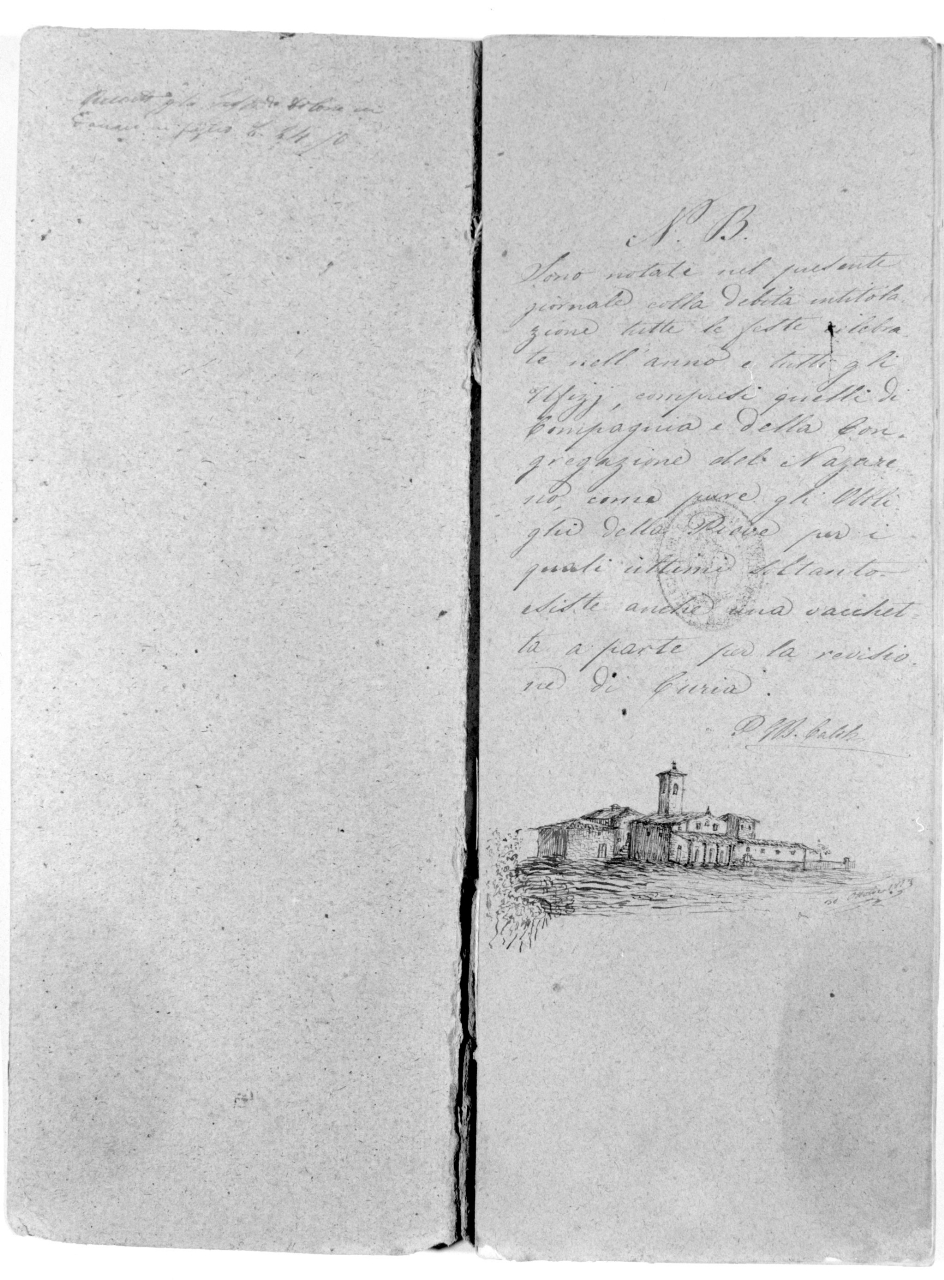 N. B.
Sono notate nel presente
giornale colla debita intitola
zione tutte le feste celebra
te nell' anno e tutti gli
Ufizj, compresi quelli di
Compagnia e della Con-
gregazione del Nazare
no, come pure gli Obbli
ghi della Pieve per i
quali ultimi soltanto
esiste anche una vacchet-
ta a parte per la revisio
ne di Curia.